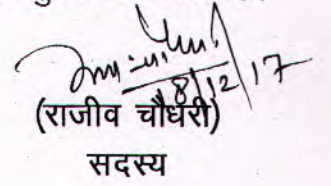 18/12/17
(राजीव चौधरी)
सदस्य